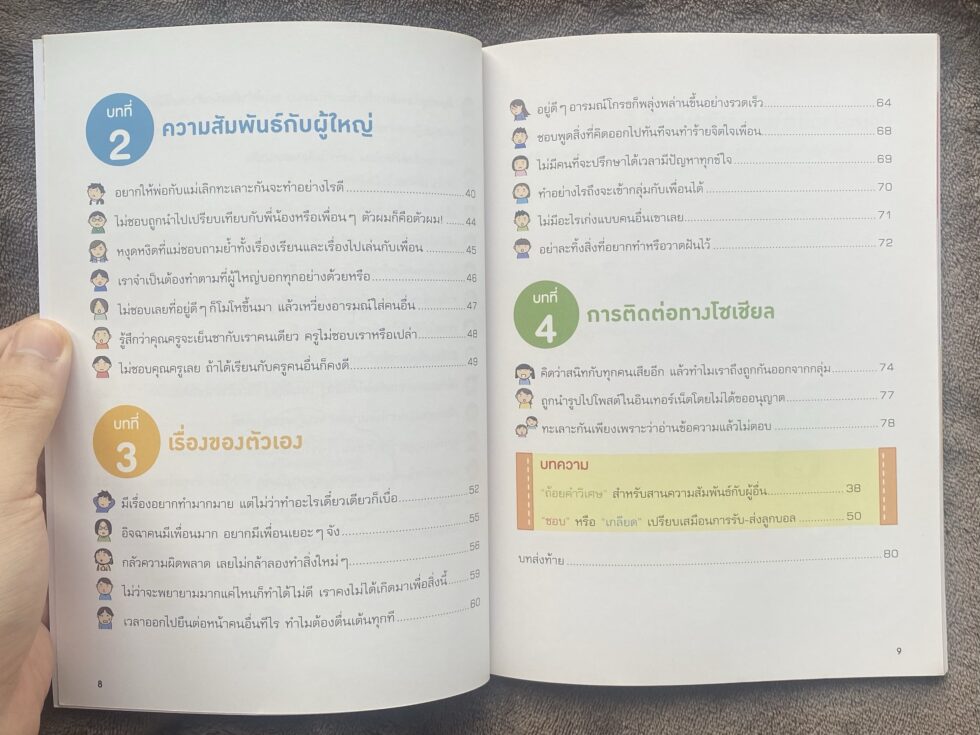 บทที่
2
ความสัมพันธ์กับผู้ใหญ่
อยากให้พ่อกับแม่เลิกทะเลาะกันจะทำอย่างไรดี 40
ไม่ชอบถูกนำไปเปรียบเทียบกับพี่น้องหรือเพื่อนๆ ตัวผมก็คือตัวผม! 44
หงุดหงิดที่แม่ชอบถามย้ำทั้งเรื่องเรียนและเรื่องไปเล่นกับเพื่อน 45
เราจำเป็นต้องทำตามที่ผู้ใหญ่บอกทุกอย่างด้วยหรือ 46
ไม่ชอบเลยที่อยู่ดีๆ ก็โมโหขึ้นมา แล้วเหวี่ยงอารมณ์ใส่คนอื่น 47
รู้สึกว่าคุณครูจะเย็นชากับเราคนเดียว ครูไม่ชอบเราหรือเปล่า 48
ไม่ชอบคุณครูเลย ถ้าได้เรียนกับครูคนอื่นก็คงดี 49
บทที่
3
เรื่องของตัวเอง
มีเรื่องอยากทำมากมาย แต่ไม่ว่าทำอะไรเดี๋ยวเดียวก็เบื่อ 52
อิจฉาคนมีเพื่อนมาก อยากมีเพื่อนเยอะๆ จัง 55
กลัวความผิดพลาด เลยไม่กล้าลองทำสิ่งใหม่ๆ 56
ไม่ว่าจะพยายามมากแค่ไหนก็ทำได้ไม่ดี เราคงไม่ได้เกิดมาเพื่อสิ่งนี้ 59
เวลาออกไปยืนต่อหน้าคนอื่นทีไร ทำไมต้องตื่นเต้นทุกที 60
8
อยู่ดีๆ อารมณ์โกรธก็พลุ่งพล่านขึ้นอย่างรวดเร็ว 64
ชอบพูดสิ่งที่คิดออกไปทันทีจนทำร้ายจิตใจเพื่อน 68
ไม่มีคนที่จะปรึกษาได้เวลามีปัญหาทุกข์ใจ 69
ทำอย่างไรถึงจะเข้ากลุ่มกับเพื่อนได้ 70
ไม่มีอะไรเก่งแบบคนอื่นเขาเลย 71
อย่าละทิ้งสิ่งที่อยากทำหรือวาดฝันไว้ 72
บทที่
4
การติดต่อทางโซเชียล
คิดว่าสนิทกับทุกคนเสียอีก แล้วทำไมเราถึงถูกกันออกจากกลุ่ม 74
ถูกนำรูปไปโพสต์ในอินเทอร์เน็ตโดยไม่ได้ขออนุญาต 77
ทะเลาะกันเพียงเพราะว่าอ่านข้อความแล้วไม่ตอบ 78
บทความ
"ถ้อยคำวิเศษ" สำหรับสานความสัมพันธ์กับผู้อื่น 38
"ชอบ" หรือ "เกลียด" เปรียบเสมือนการรับ-ส่งลูกบอล 50
บทส่งท้าย 80
9